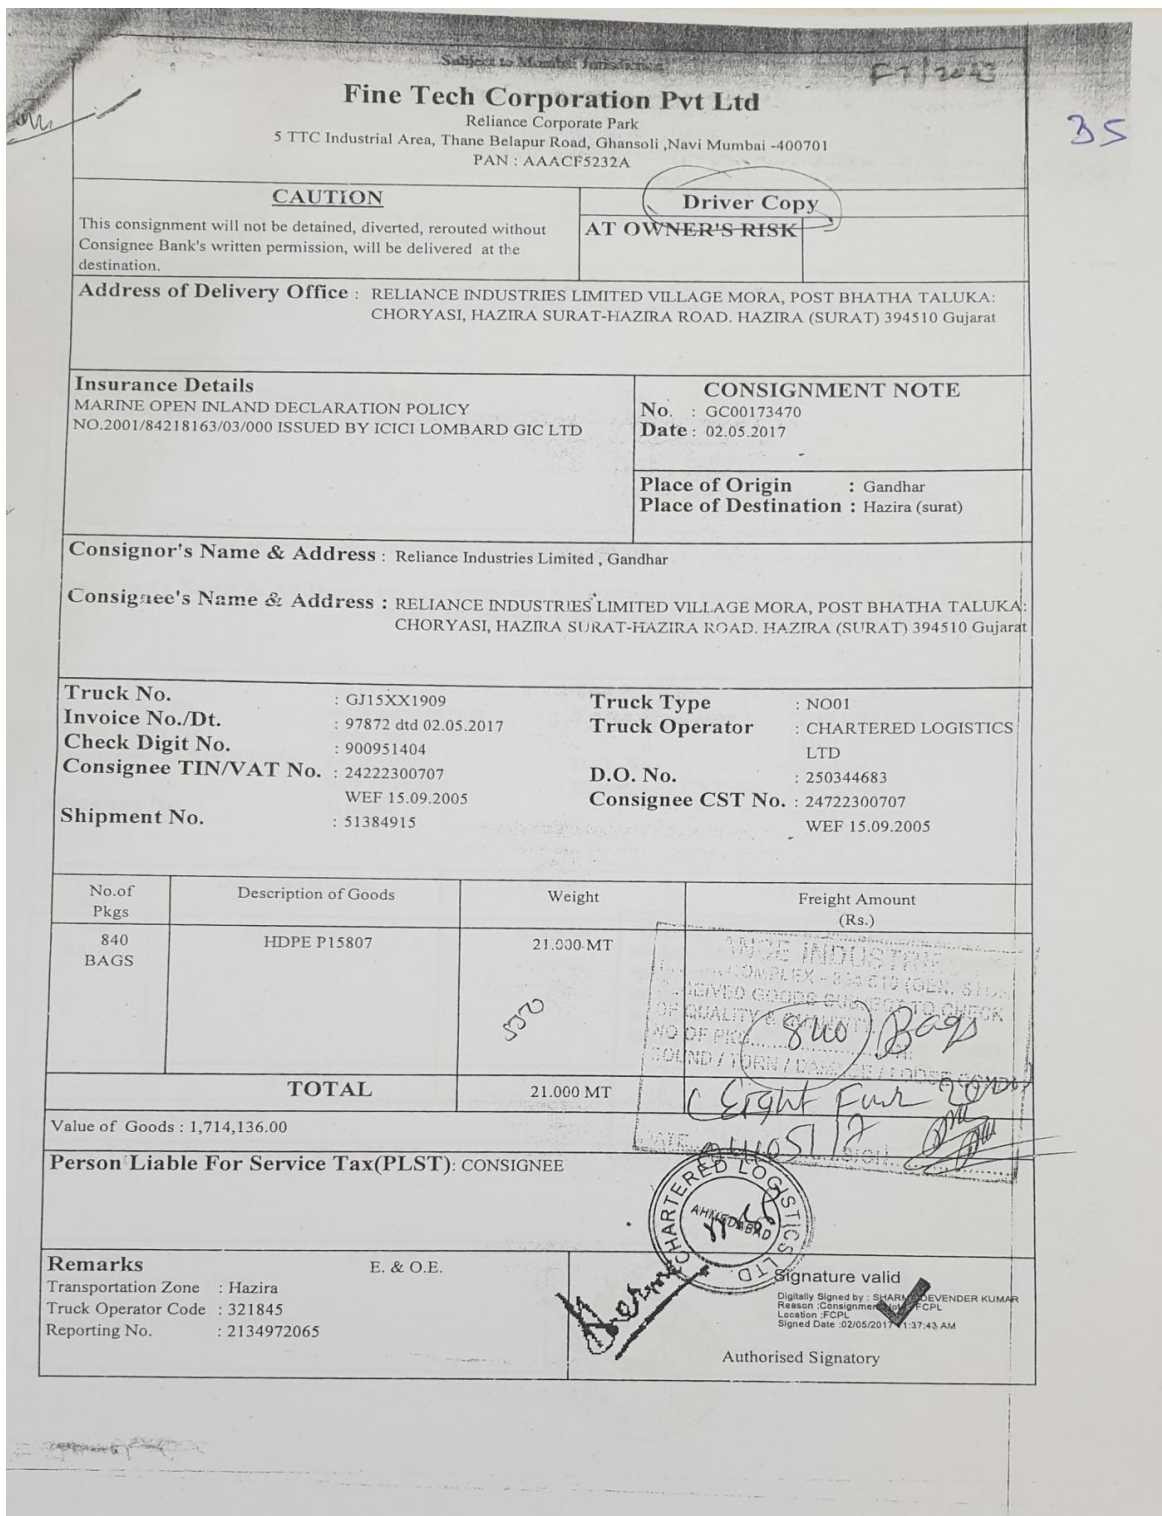 Subject to Mumbai Jurisdiction
35
Fine Tech Corporation Pvt Ltd
Reliance Corporate Park
5 TTC Industrial Area, Thane Belapur Road, Ghansoli ,Navi Mumbai -400701
PAN : AAACF5232A
CAUTION
This consignment will not be detained, diverted, rerouted without
Consignee Bank's written permission, will be delivered at the
destination.
Driver Copy
AT OWNER'S RISK
Address of Delivery Office : RELIANCE INDUSTRIES LIMITED VILLAGE MORA, POST BHATHA TALUKA:
CHORYASI, HAZIRA SURAT-HAZIRA ROAD. HAZIRA (SURAT) 394510 Gujarat
Insurance Details
MARINE OPEN INLAND DECLARATION POLICY
NO.2001/84218163/03/000 ISSUED BY ICICI LOMBARD GIC LTD
CONSIGNMENT NOTE
No. : GC00173470
Date : 02.05.2017
Place of Origin : Gandhar
Place of Destination : Hazira (surat)
Consignor's Name & Address : Reliance Industries Limited , Gandhar
Consignee's Name & Address : RELIANCE INDUSTRIES LIMITED VILLAGE MORA, POST BHATHA TALUKA:
CHORYASI, HAZIRA SURAT-HAZIRA ROAD. HAZIRA (SURAT) 394510 Gujarat
Truck No. : GJ15XX1909 Truck Type : NO01
Invoice No./Dt. : 97872 dtd 02.05.2017 Truck Operator : CHARTERED LOGISTICS
Check Digit No. : 900951404 LTD
Consignee TIN/VAT No. : 24222300707 D.O. No. : 250344683
WEF 15.09.2005 Consignee CST No. : 24722300707
Shipment No. : 51384915 WEF 15.09.2005
No.of Description of Goods Weight Freight Amount
Pkgs (Rs.)
840 HDPE P15807 21.000 MT
BAGS
INDUSTRIE
COMPLEX
GOODS SUBJECT TO CHECK
OF QUALITY &
NO OF 840 Bags
SOUND / TORN / DAMAGE / LOOSE
TOTAL 21.000 MT
Eight
DATE
Value of Goods : 1,714,136.00
Person Liable For Service Tax(PLST): CONSIGNEE
CHARTERED LOGISTICS LTD
AHMEDABAD
Remarks E. & O.E.
Transportation Zone : Hazira
Truck Operator Code : 321845
Reporting No. : 2134972065
Signature valid
Digitally Signed by : SHARMA DEVENDER KUMAR
Reason :Consignment Note FCPL
Location :FCPL
Signed Date :02/05/2017 11:37:43 AM
Authorised Signatory